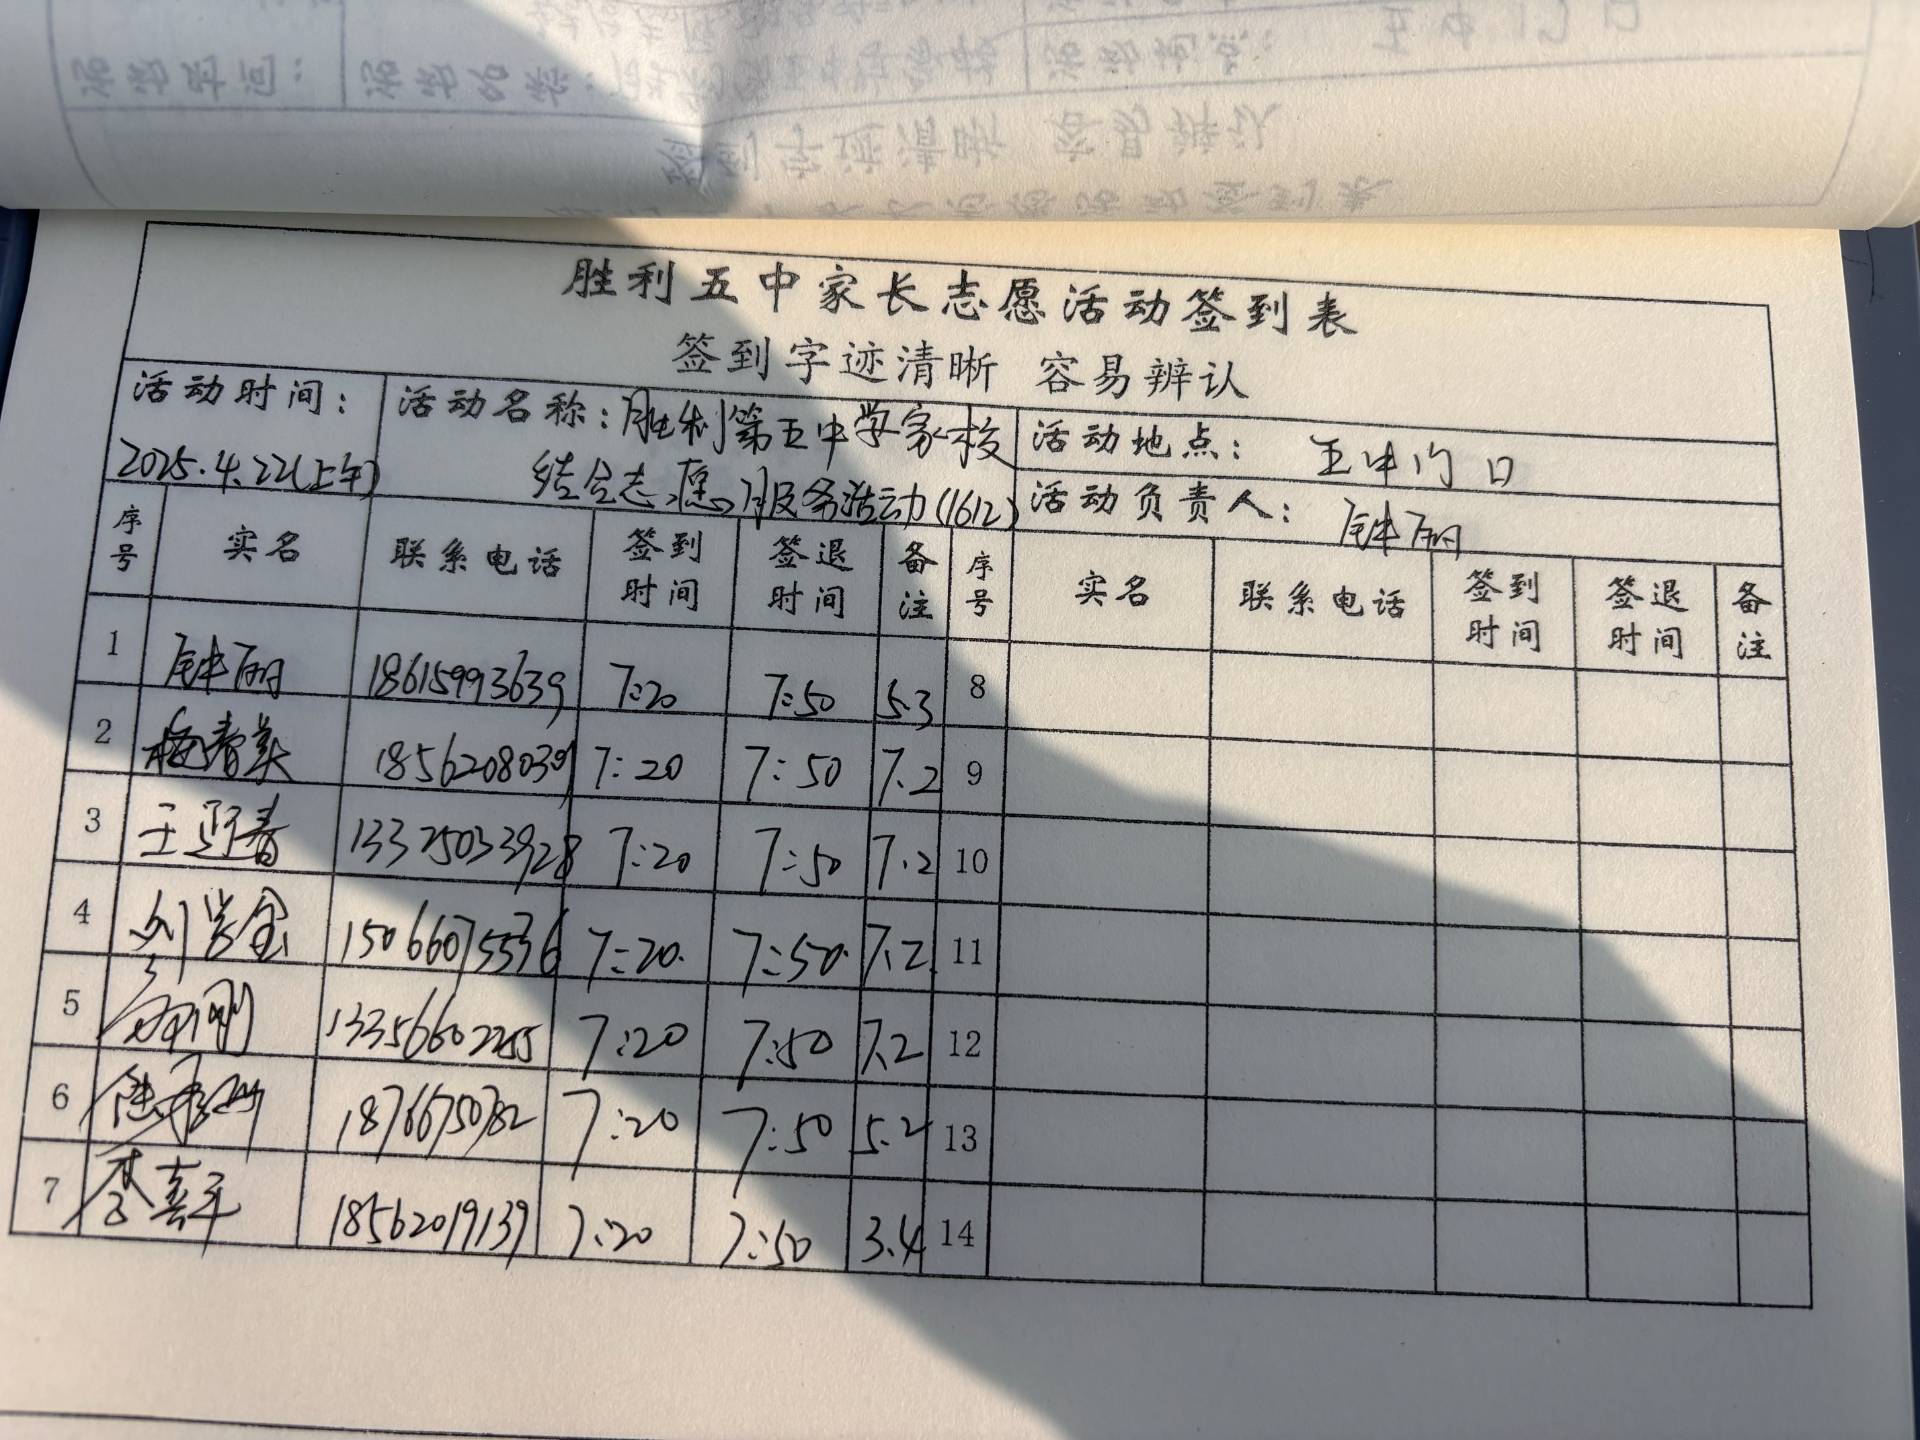 胜利五中家长志愿活动签到表
签到字迹清晰 容易辨认
活动时间：
2025.4.22(上午)
活动名称：胜利第五中学家校
结合志愿服务活动(1612)
活动地点： 五中门口
活动负责人：
序号 实名 联系电话 签到时间 签退时间 备注 序号 实名 联系电话 签到时间 签退时间 备注
1 18615993639 7:20 7:50 5.3 8
2 7:20 7:50 7.2 9
3 王迎春 13325033928 7:20 7:50 7.2 10
4 15066075536 7:20. 7:50. 7.2. 11
5 13356602255 7:20 7:50 7.2 12
6 18766750782 7:20 7:50 5.2 13
7 李喜平 18562019139 7:20 7:50 3.4 14